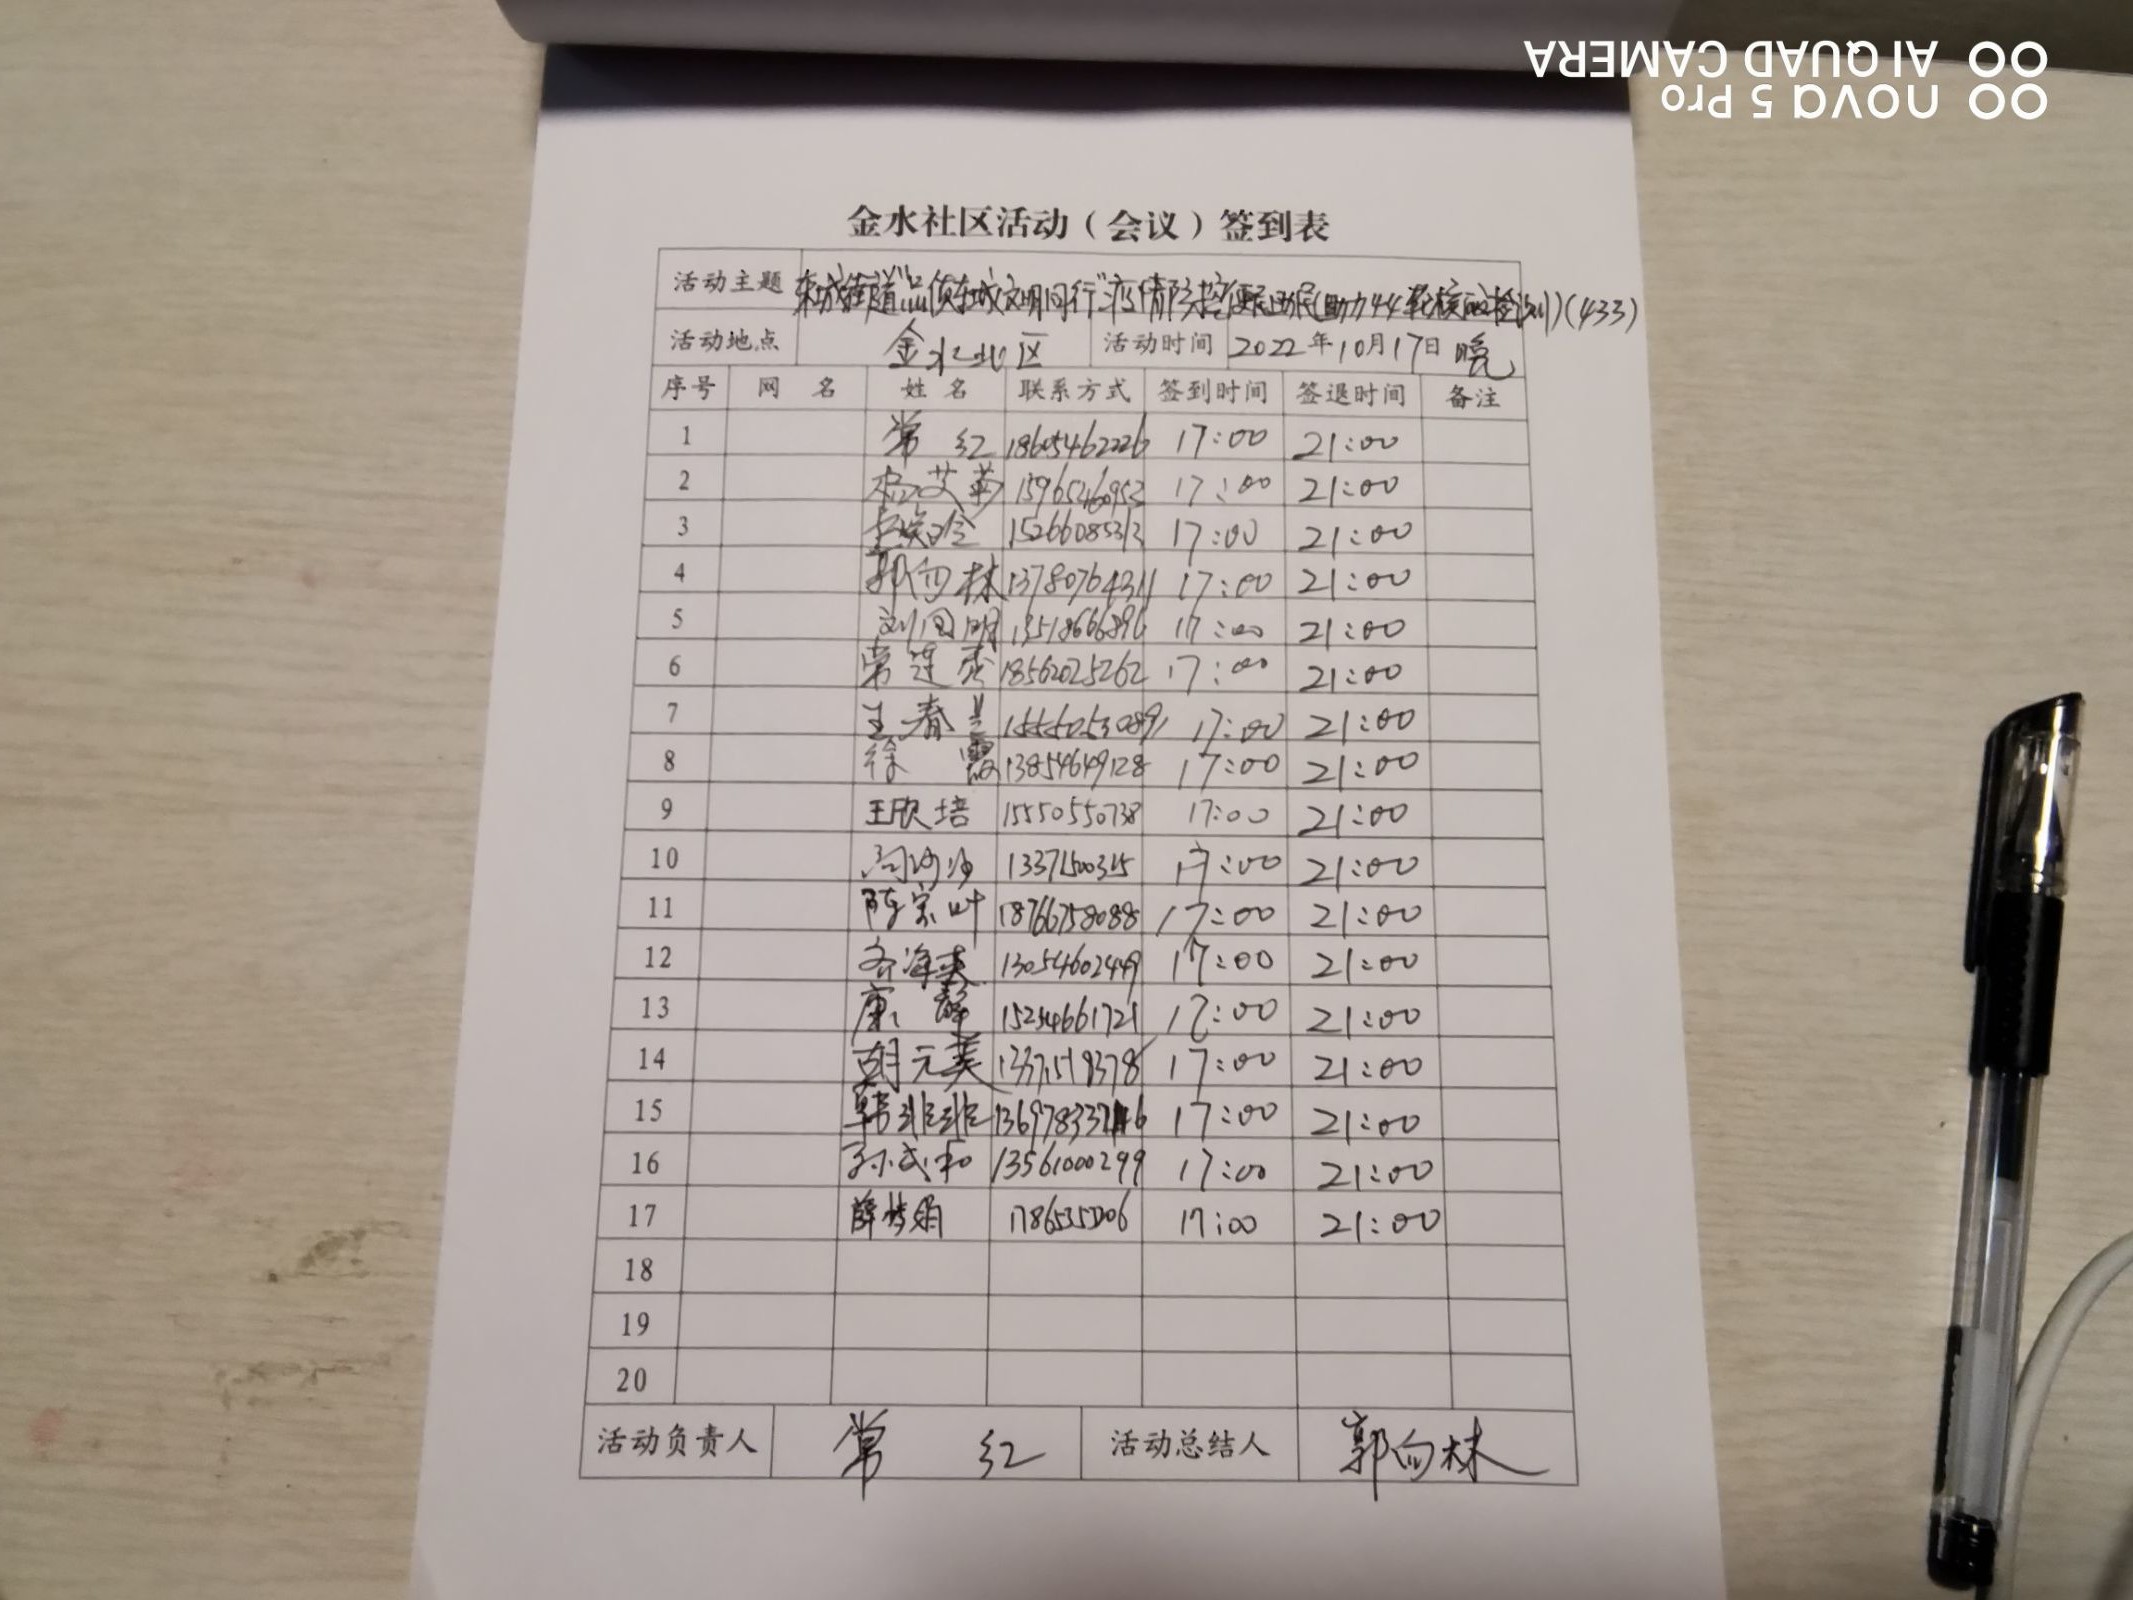 AI QUAD CAMERA
nova 5 Pro
金水社区活动（会议）签到表
活动主题 东城街道"品质东城文明同行"疫情防控便民助民(助力44轮核酸检测)(433)
活动地点 金水北区 活动时间 2022年10月17日 晚
序号 网 名 姓 名 联系方式 签到时间 签退时间 备注
1 常 红 18605462226 17:00 21:00
2 17:00 21:00
3 15266085313 17:00 21:00
4 郭向林 13780764311 17:00 21:00
5 刘国明 13518666896 17:00 21:00
6 常连秀 18562025262 17:00 21:00
7 王春兰 15550530891 17:00 21:00
8 徐 霞 13854649128 17:00 21:00
9 王欣培 15550550738 17:00 21:00
10 17:00 21:00
11 陈宗叶 18766758088 17:00 21:00
12 13054602449 17:00 21:00
13 康 静 15254661721 17:00 21:00
14 胡元英 13371519378 17:00 21:00
15 韩非非 17:00 21:00
16 孙成和 13561000299 17:00 21:00
17 薛梦娟 17:00 21:00
18
19
20
活动负责人 常 红 活动总结人 郭向林